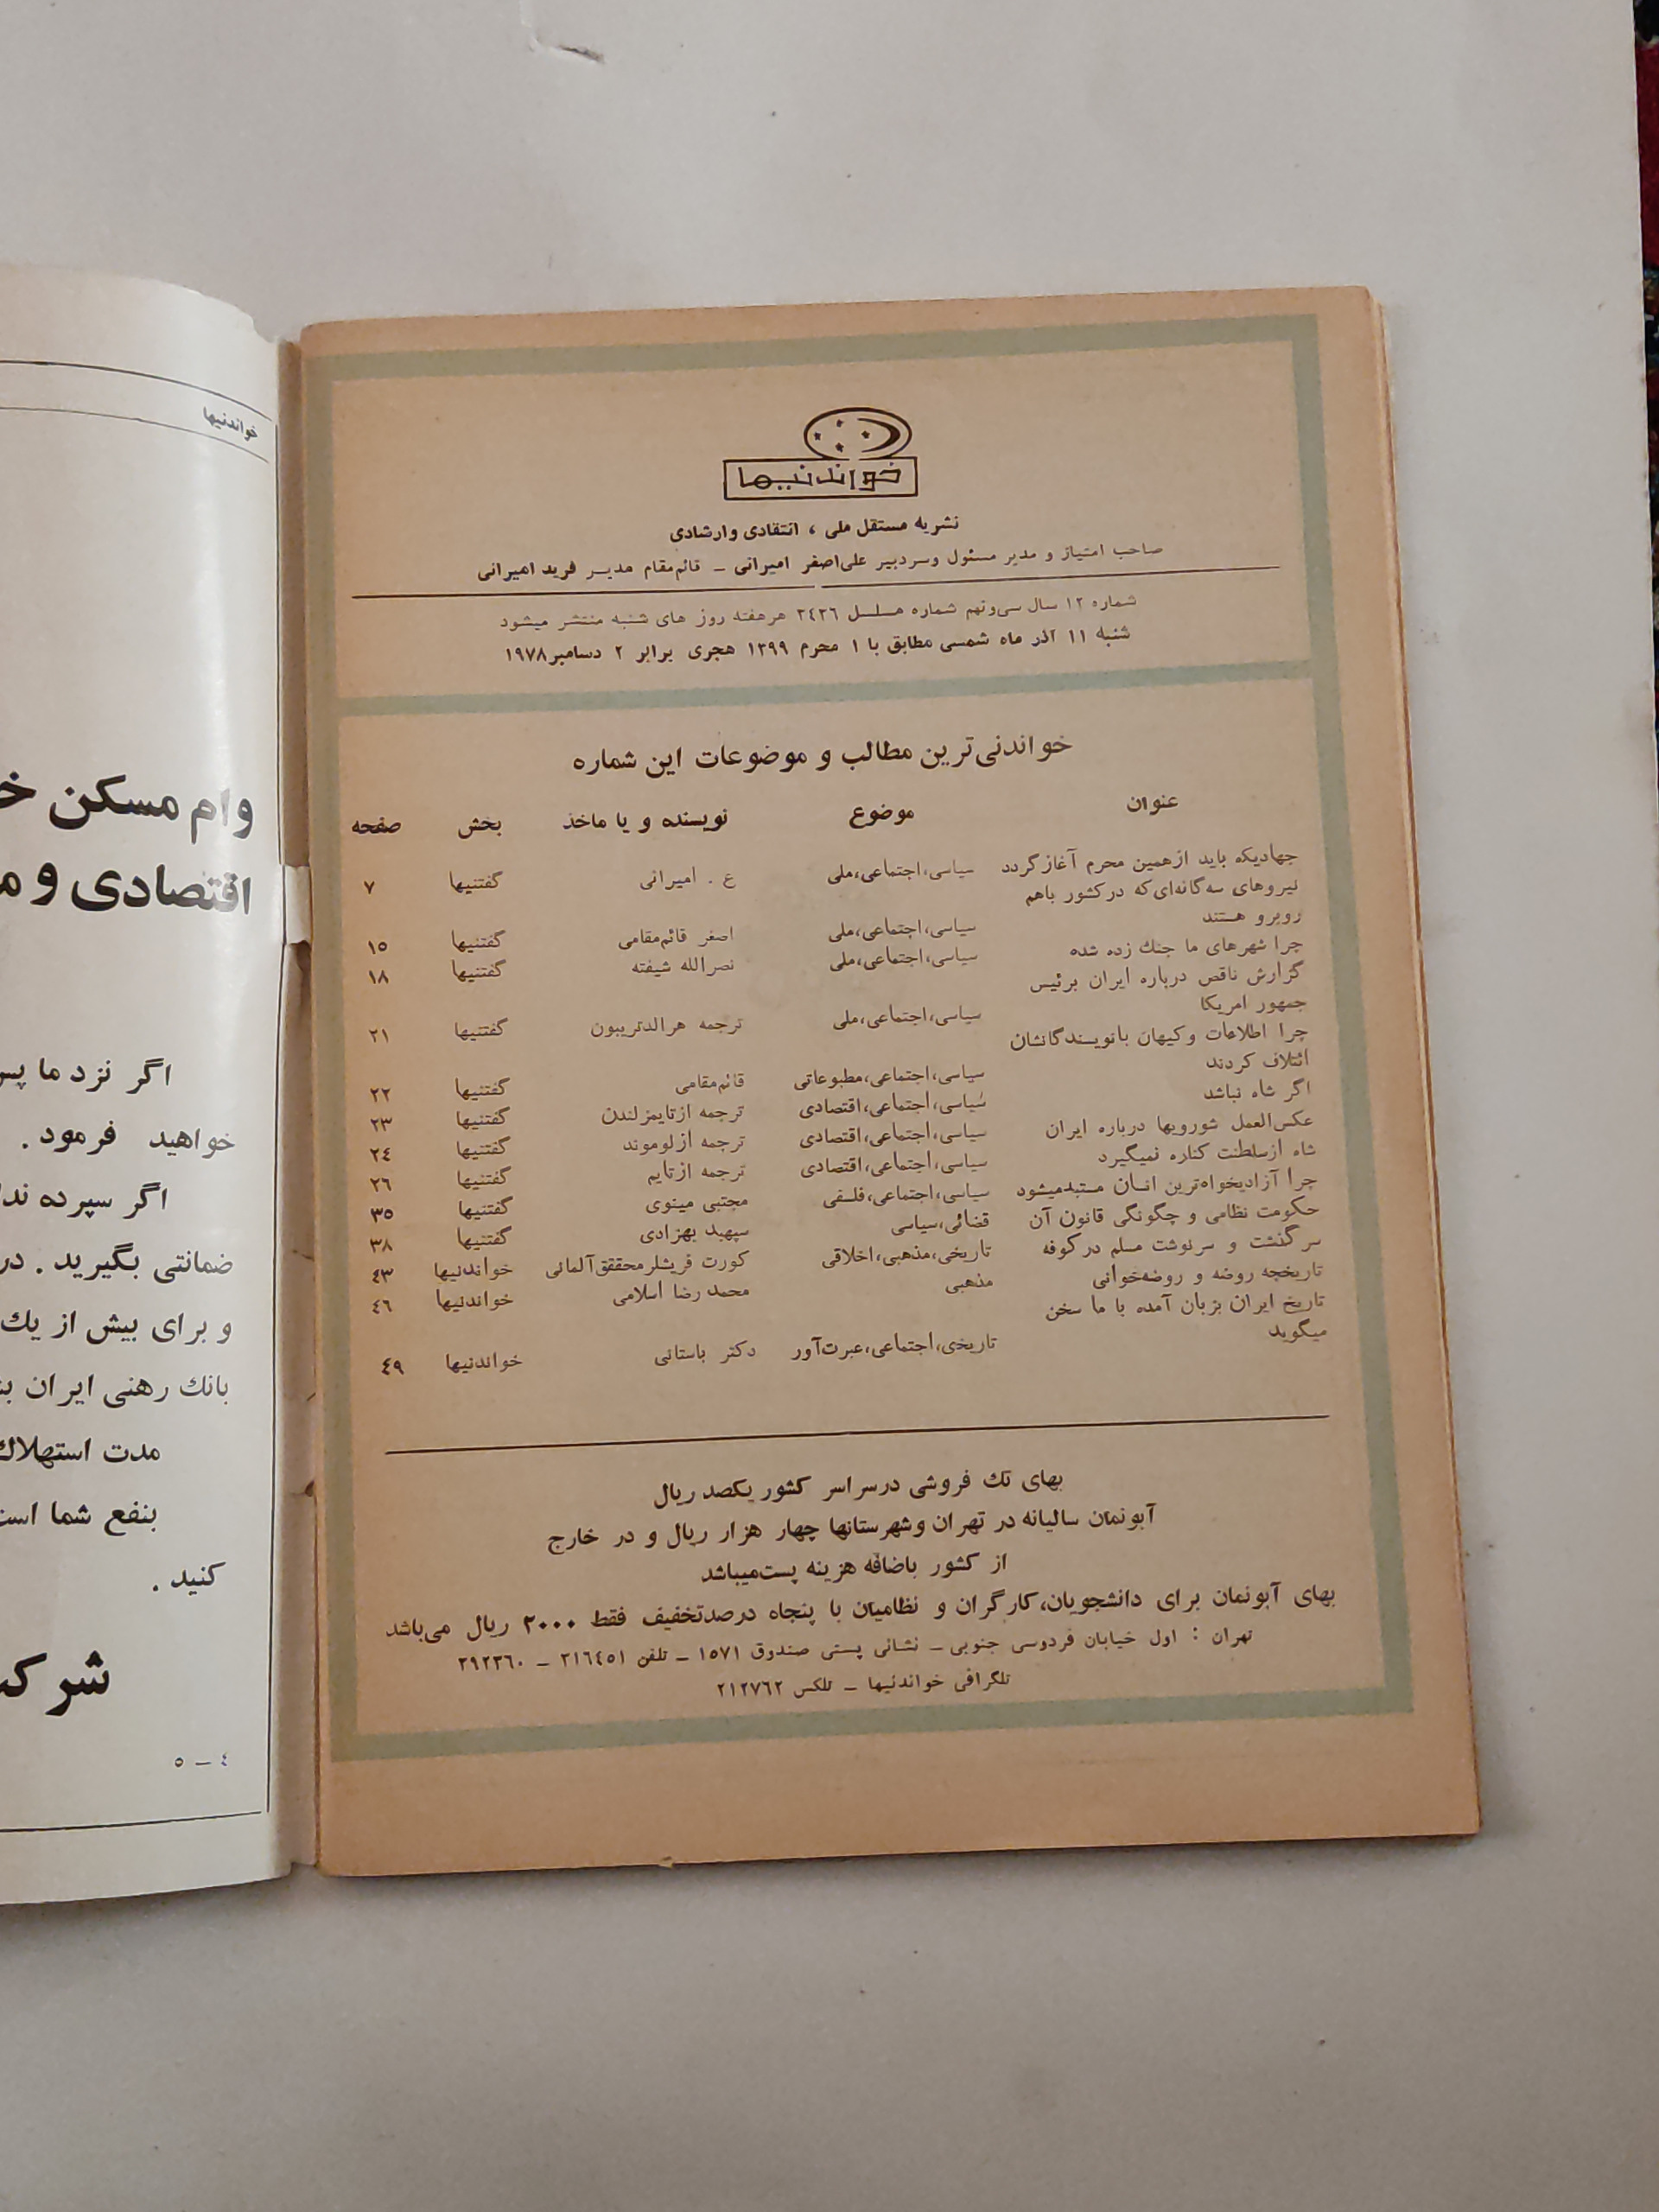 خواندنیها
نشریه مستقل ملی ، انتقادی وارشادی
صاحب امتیاز و مدیر مسئول وسردبیر علی‌اصغر امیرانی ــ قائم‌مقام مدیــر فرید امیرانی
شماره ۱۲ سال سی‌ونهم شماره مسلسل ۲٤۲٦ هرهفته روز های شنبه منتشر میشود
شنبه ۱۱ آذر ماه شمسی مطابق با ۱ محرم ۱۳۹۹ هجری برابر ۲ دسامبر۱۹۷۸
خواندنی‌ترین مطالب و موضوعات این شماره
عنوان موضوع نویسنده و یا ماخذ بخش صفحه
جهادیکه باید ازهمین محرم آغازگردد سیاسی،اجتماعی،ملی ع . امیرانی گفتنیها ۷
نیروهای سه‌گانه‌ای‌که درکشور باهم
روبرو هستند سیاسی،اجتماعی،ملی اصغر قائم‌مقامی گفتنیها ۱٥
چرا شهرهای ما جنك زده شده سیاسی،اجتماعی،ملی نصرالله شیفته گفتنیها ۱۸
گزارش ناقص درباره ایران برئیس
جمهور امریکا سیاسی،اجتماعی،ملی ترجمه هرالدتریبون گفتنیها ۲۱
چرا اطلاعات وکیهان بانویسندگانشان
ائتلاف کردند سیاسی،اجتماعی،مطبوعاتی قائم‌مقامی گفتنیها ۲۲
اگر شاه نباشد سیاسی،اجتماعی،اقتصادی ترجمه ازتایمزلندن گفتنیها ۲۳
عکس‌العمل شورویها درباره ایران سیاسی،اجتماعی،اقتصادی ترجمه ازلوموند گفتنیها ۲٤
شاه ازسلطنت کناره نمیگیرد سیاسی،اجتماعی،اقتصادی ترجمه ازتایم گفتنیها ۲٦
چرا آزادیخواه‌ترین انسان مستبدمیشود سیاسی،اجتماعی،فلسفی مجتبی مینوی گفتنیها ۳٥
حکومت نظامی و چگونگی قانون آن قضائی،سیاسی سپهبد بهزادی گفتنیها ۳۸
سرگذشت و سرنوشت مسلم درکوفه تاریخی،مذهبی،اخلاقی کورت فریشلرمحققق‌آلمانی خواندنیها ٤۳
تاریخچه روضه و روضه‌خوانی مذهبی محمدرضا اسلامی خواندنیها ٤٦
تاریخ ایران بزبان آمده با ما سخن
میگوید تاریخی،اجتماعی،عبرت‌آور دکتر باستانی خواندنیها ٤۹
بهای تك فروشی درسراسر کشور یکصد ریال
آبونمان سالیانه در تهران وشهرستانها چهار هزار ریال و در خارج
از کشور باضافه هزینه پست‌میباشد
بهای آبونمان برای دانشجویان،کارگران و نظامیان با پنجاه درصدتخفیف فقط ۲۰۰۰ ریال می‌باشد
تهران : اول خیابان فردوسی جنوبی ــ نشانی پستی صندوق ۱٥۷۱ ــ تلفن ۳۱٦٤٥۱ ــ ۳۹۲۳٦۰
تلگرافی خواندنیها ــ تلکس ۲۱۲۷٦۲
خواندنیها
وام مسکن
اقتصادی و
اگر نزد ما
خواهید فرمود .
اگر سپرده
ضمانتی بگیرید . در
و برای بیش از یك
بانك رهنی ایران
مدت استهلاك
بنفع شما است
کنید .
٤ ــ ٥